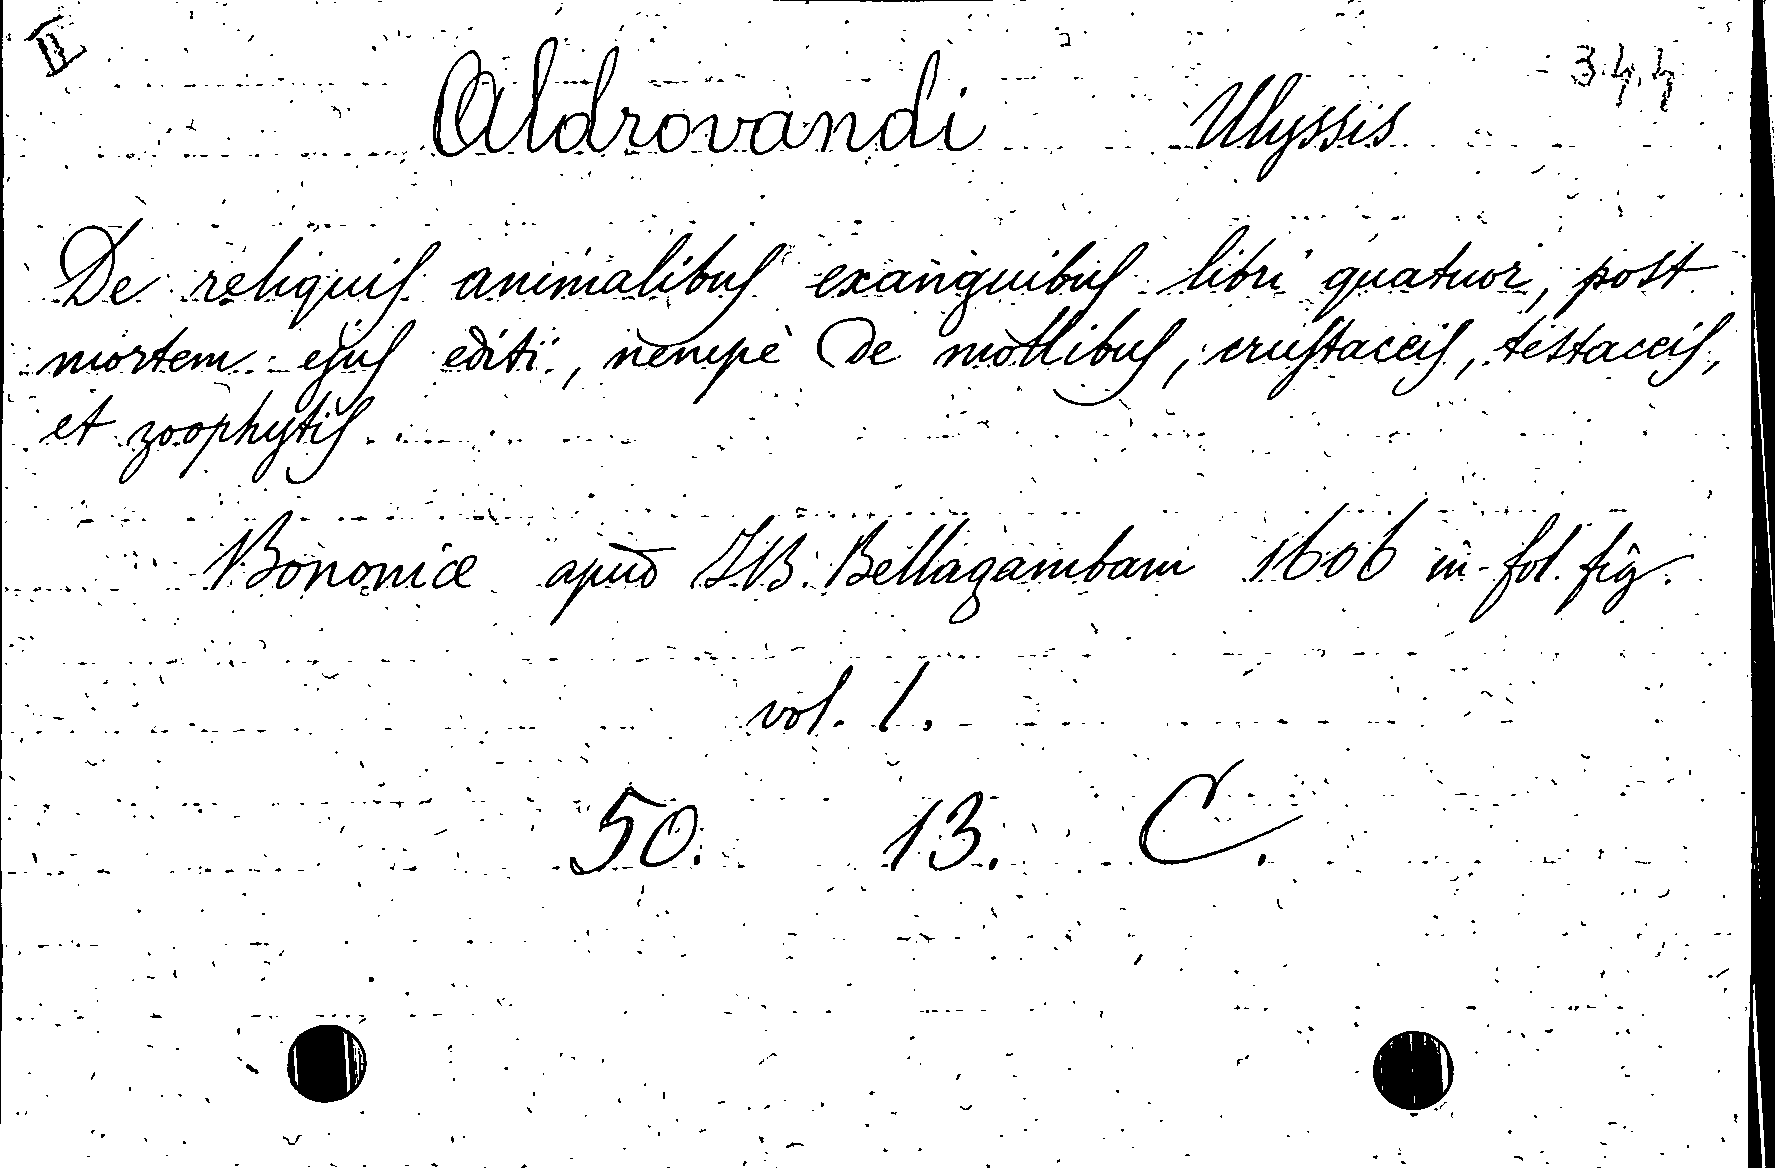 II 344
Aldrovandi Ulyssis
De reliquis animalibus exanguibus libri quatuor, post
mortem ejus editi, nempè de mollibus, crustaceis, testaceis,
et zoophytis
Bononiæ apud J.B. Bellagambam 1606 in-fol. fig.
vol. 1.
50. 13. C.